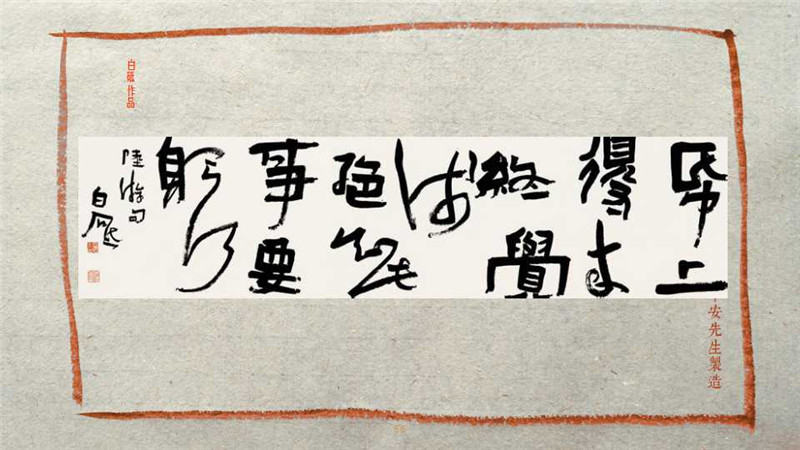 帋上
得来
終覺
浅
絶知此
事要
躬行
陸游句
白砥
白砥作品
安先生製造